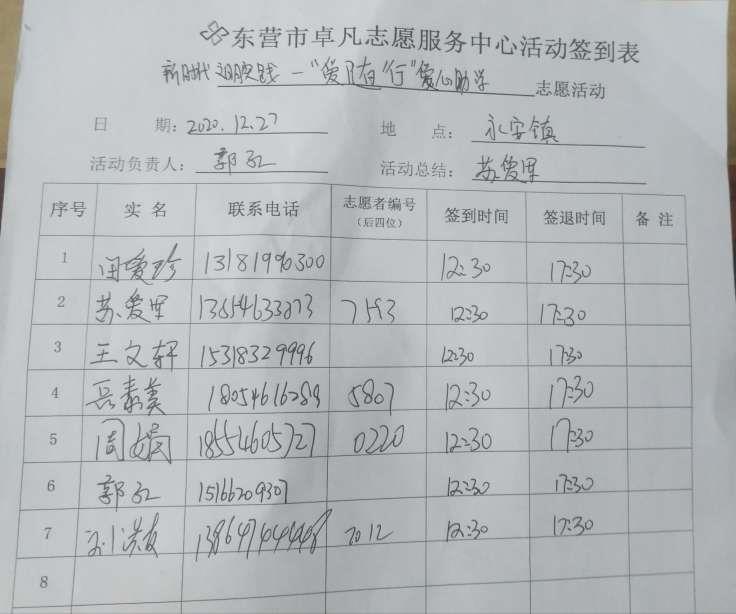 东营市卓凡志愿服务中心活动签到表
新时代 一"爱随行"爱心助学 志愿活动
日 期: 2020.12.27 地 点: 永安镇
活动负责人: 郭红 活动总结: 苏爱军
序号 实名 联系电话 志愿者编号（后四位） 签到时间 签退时间 备注
1 闫爱珍 13181990300 12:30 17:30
2 苏爱军 7593 12:30 17:30
3 王文轩 15318329996 12:30 17:30
4 岳素美 18054616289 5807 12:30 17:30
5 周娟 18554605727 0220 12:30 17:30
6 郭红 15166209307 12:30 17:30
7 2012 12:30 17:30
8